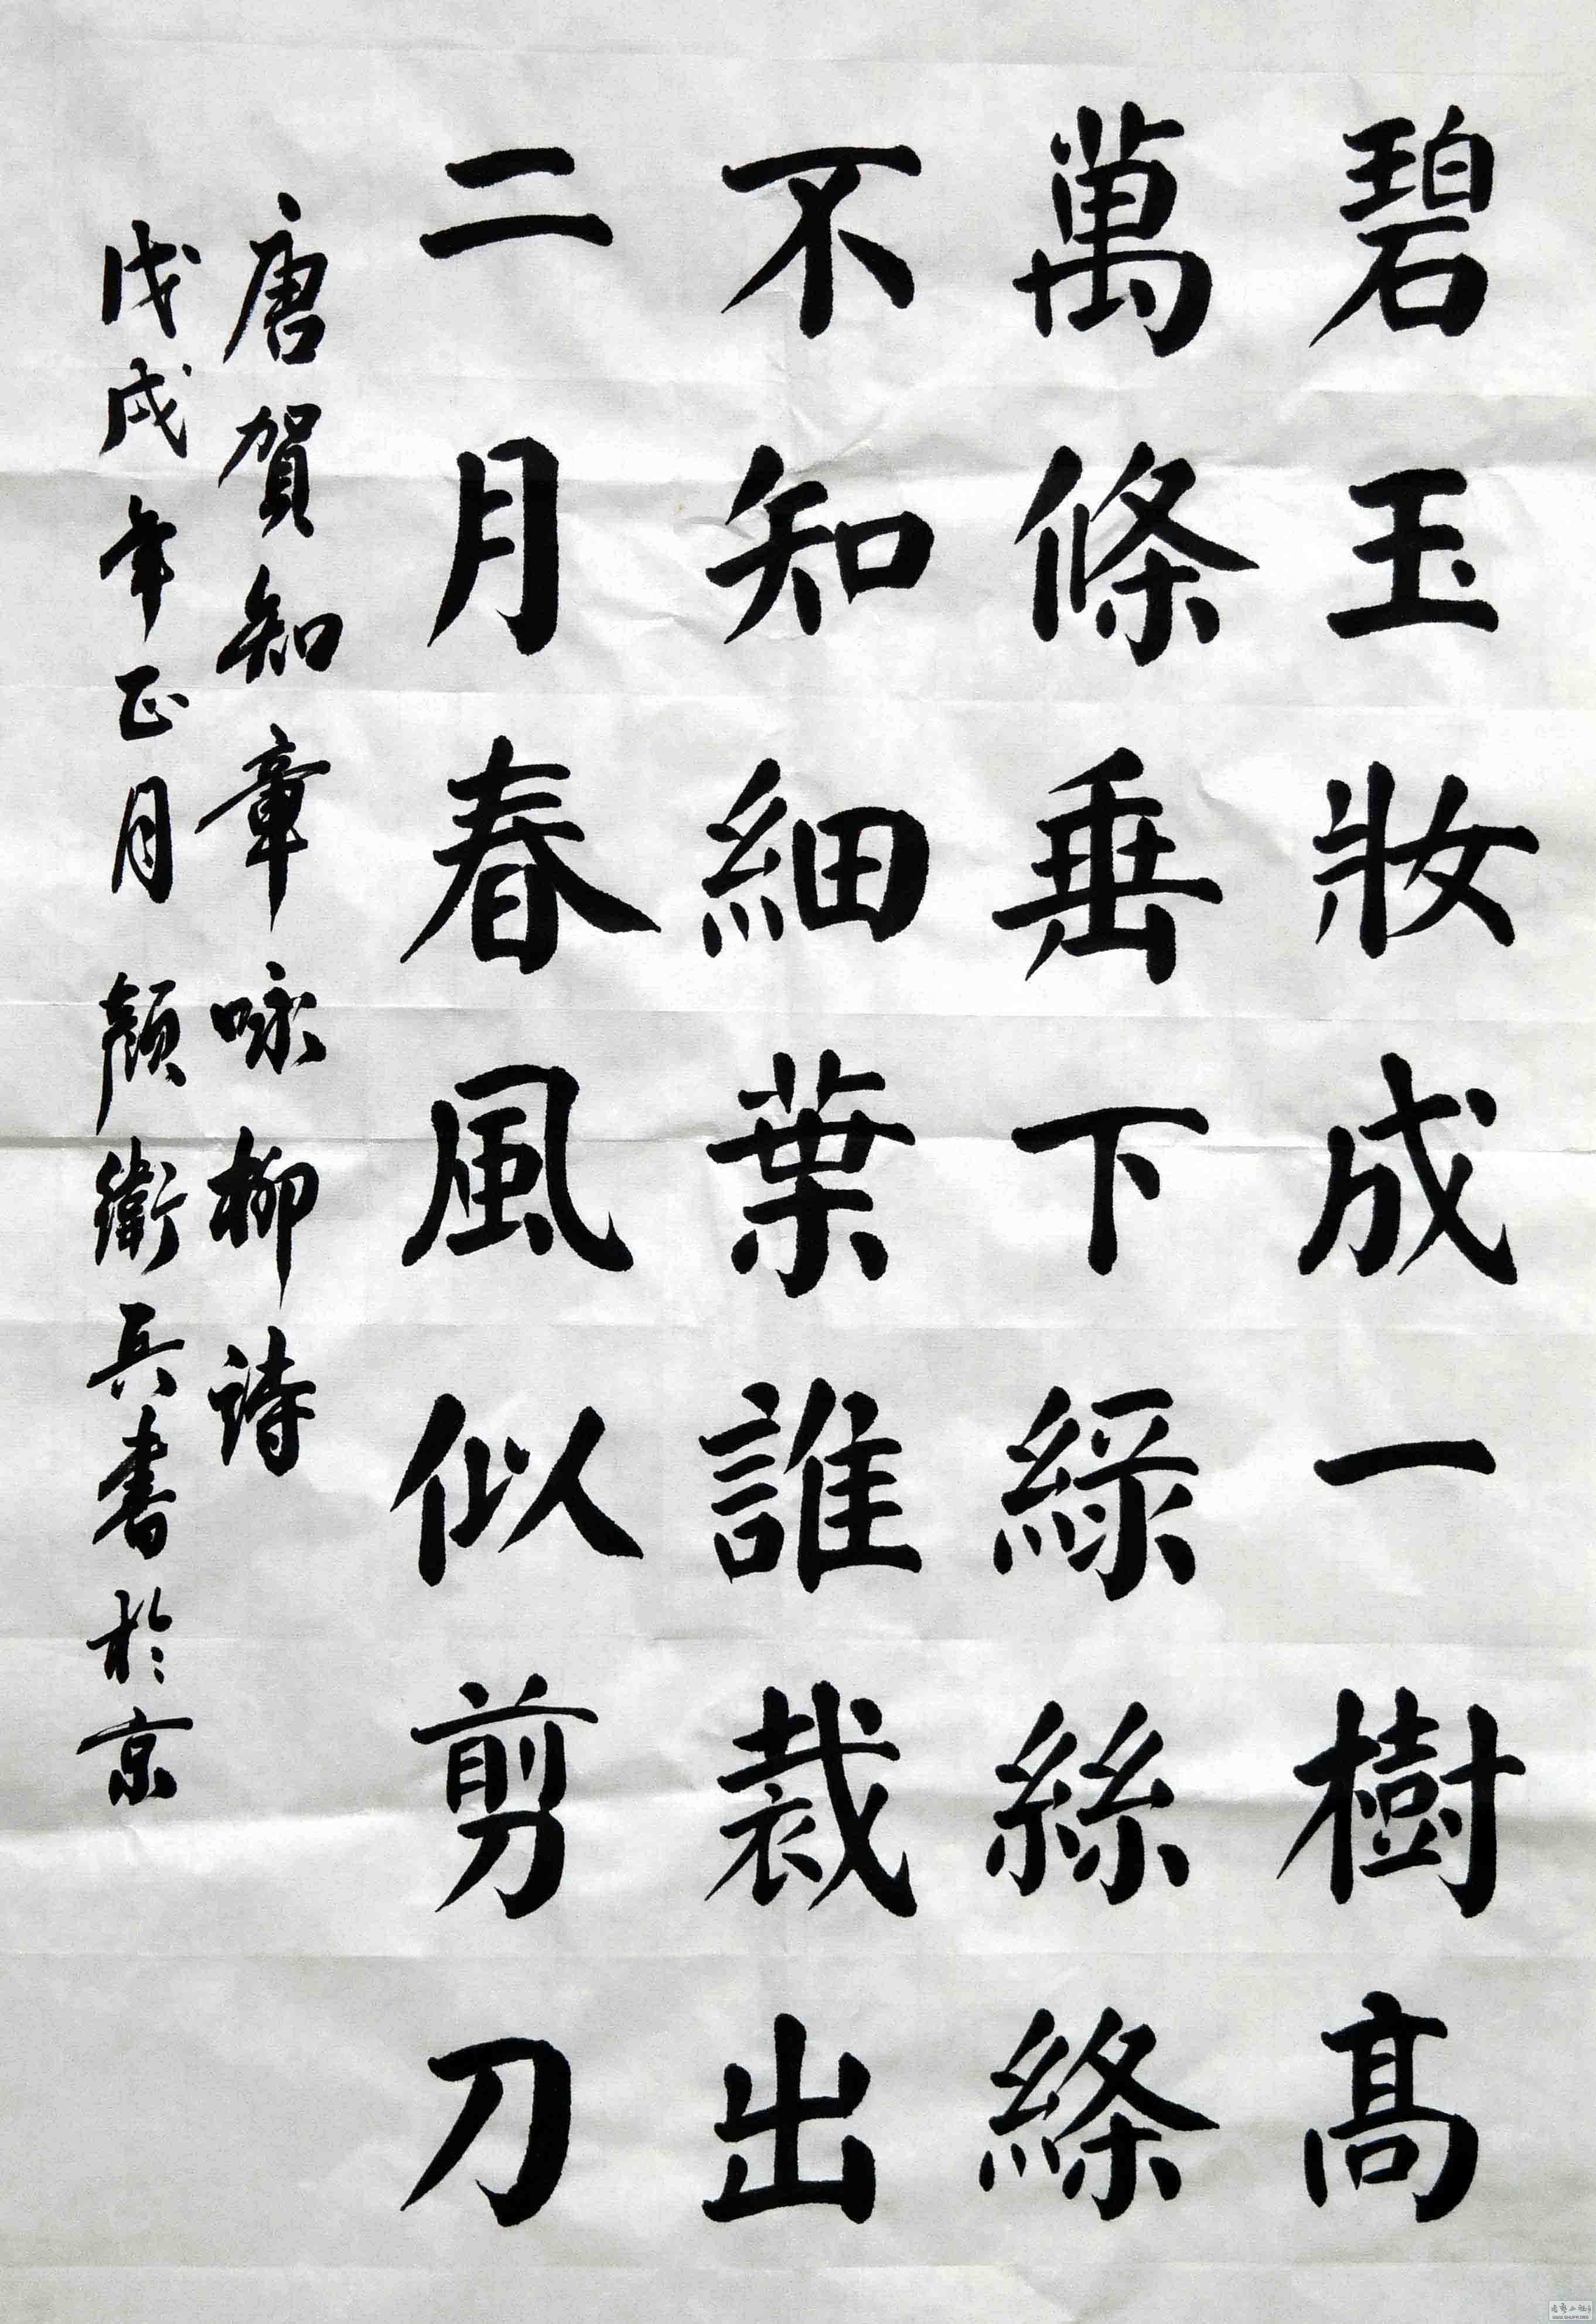 碧玉妝成一樹髙
萬條垂下綠絲絛
不知細葉誰裁出
二月春風似剪刀
唐賀知章咏柳詩
戊戌年正月顏衛兵書於京